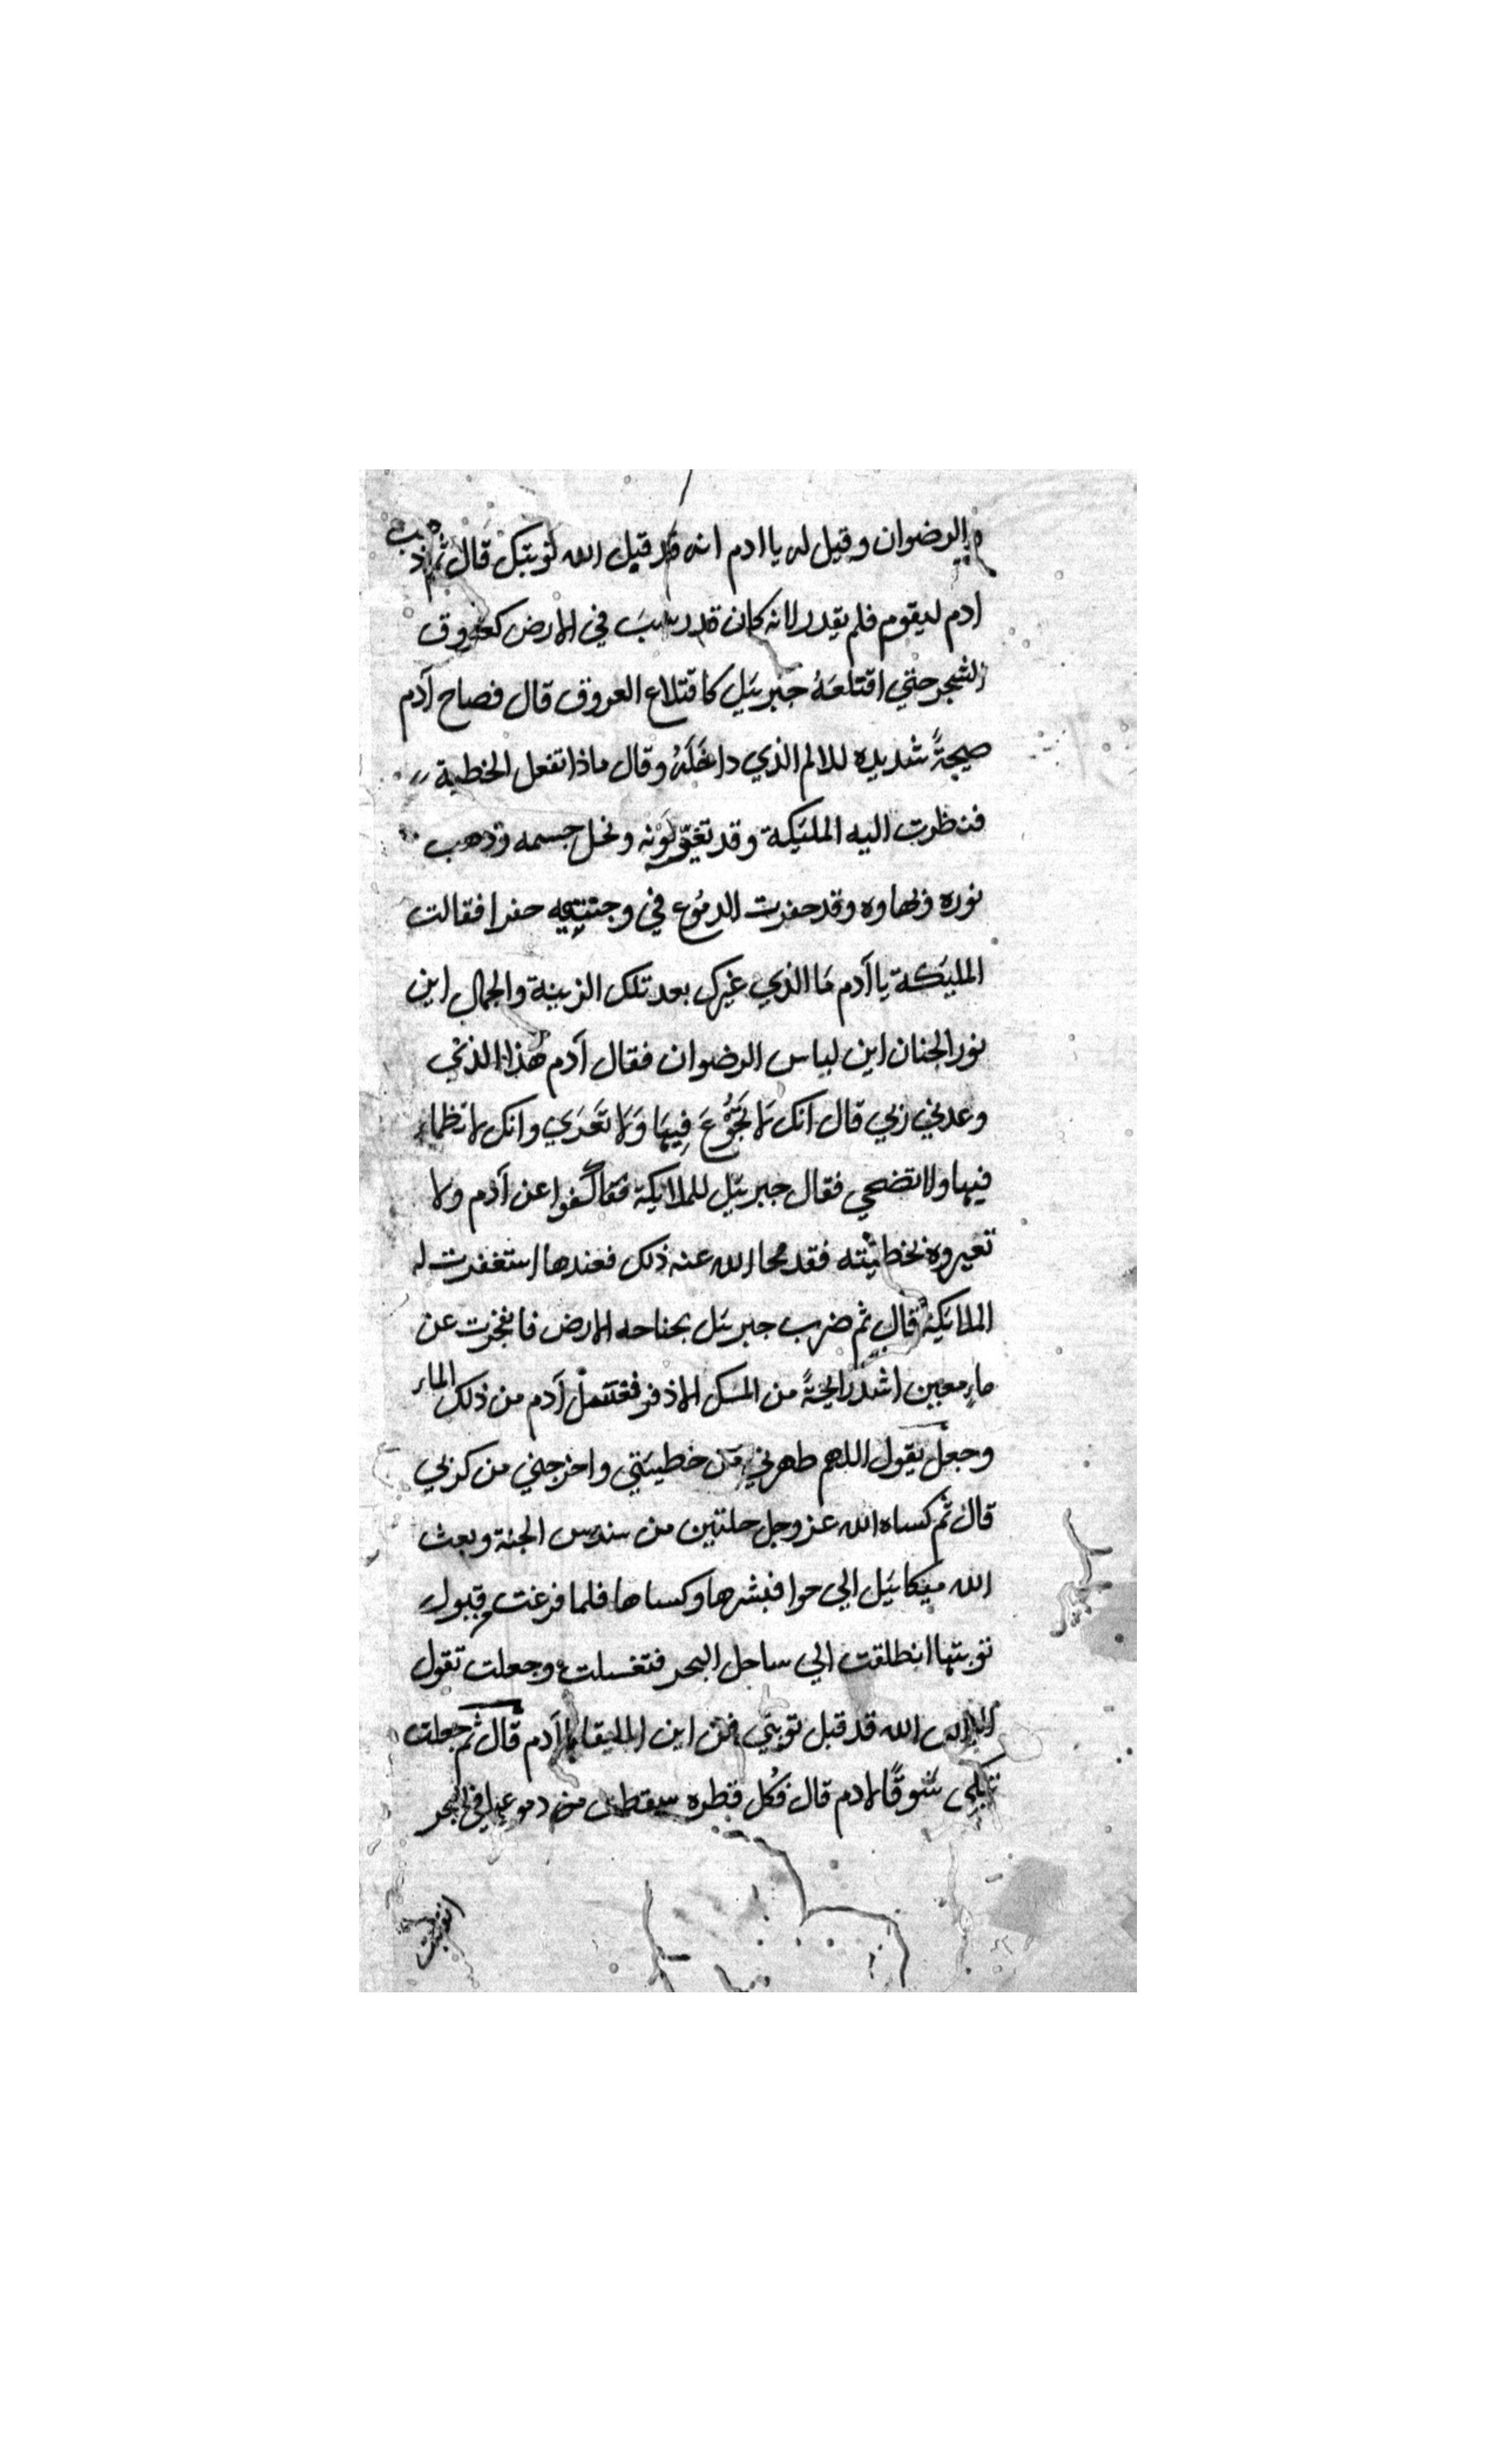 الرضوان وقيل له ياادم انه قد قبل الله توبتك قال ثم ذهب
ادم ليقوم فلم يقدر لانه كان قد رسب في الارض كعروق
الشجر حتي اقتلعَهُ جبريَل كاقتلاع العروق قال فصاح آدم
صيحةً شديده للالم الذي داخَلَهُ وقال ماذا تفعل الخطية
فنظرت اليه المليَكة وقد تغيّر لَوْنه ونحل جسمه وذهب
نوره وبهاوه وقد حفرت الدمُوع في وجنتيه حفرا فقالت
المليَكة ياآدم مَا الذي غيرك بعد تلك الزينة والجمال اين
نور الجنان اين لباس الرضوان فقال آدم هذا الذي
وعدني ربي قال انك لَا تَجُوْعَ فِيهَا وَلَا تَعْرَي وانك لا تظماء
فيها ولا تضحي فقال جبريَل للملايكة كفوا عن آدم ولا
تعيروه بخطيئته فقد محا الله عنه ذلك فعندها استغفرت له
الملايَكة قال ثم ضرب جبريَل بجناحه الارض فانفجرت عن
ماءٍ معين اشد رايحةً من المسك الاذفر فغتسل آدم من ذلك الماء
وجعل يقول اللهم طهرني من خطيئتي واخرجني من كربي
قال ثم كساه الله عز وجل حلتين من سندس الجنة وبعث
الله ميكايَل الي حوا فبشرها وكساها فلما فرغت وقبول
توبتها انطلقت الي ساحل البحر فتغسلت وجعلت تقول
الله قد قبل توبتي فمن اين الملتقا ياآدم قال ثم جعلت
تبكي شَوقًا لادم قال فكُل قطره سقطت من دموعها في البحر
انقلبت